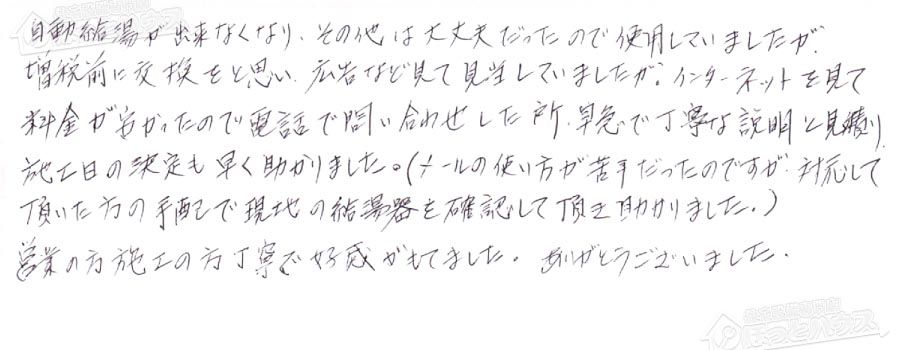 自動給湯が出来なくなり、その他は大丈夫だったので使用していましたが、
増税前に交換をと思い、広告など見て見当していましたが、インターネットを見て
料金が安かったので電話で問い合わせした所、早急で丁寧な説明と見積り、
施工日の決定も早く助かりました。(メールの使い方が苦手だったのですが、対応して
頂いた方の手配で現地の給湯器を確認して頂き助かりました。)
営業の方施工の方丁寧で好感がもてました。ありがとうございました。
ほっとハウス